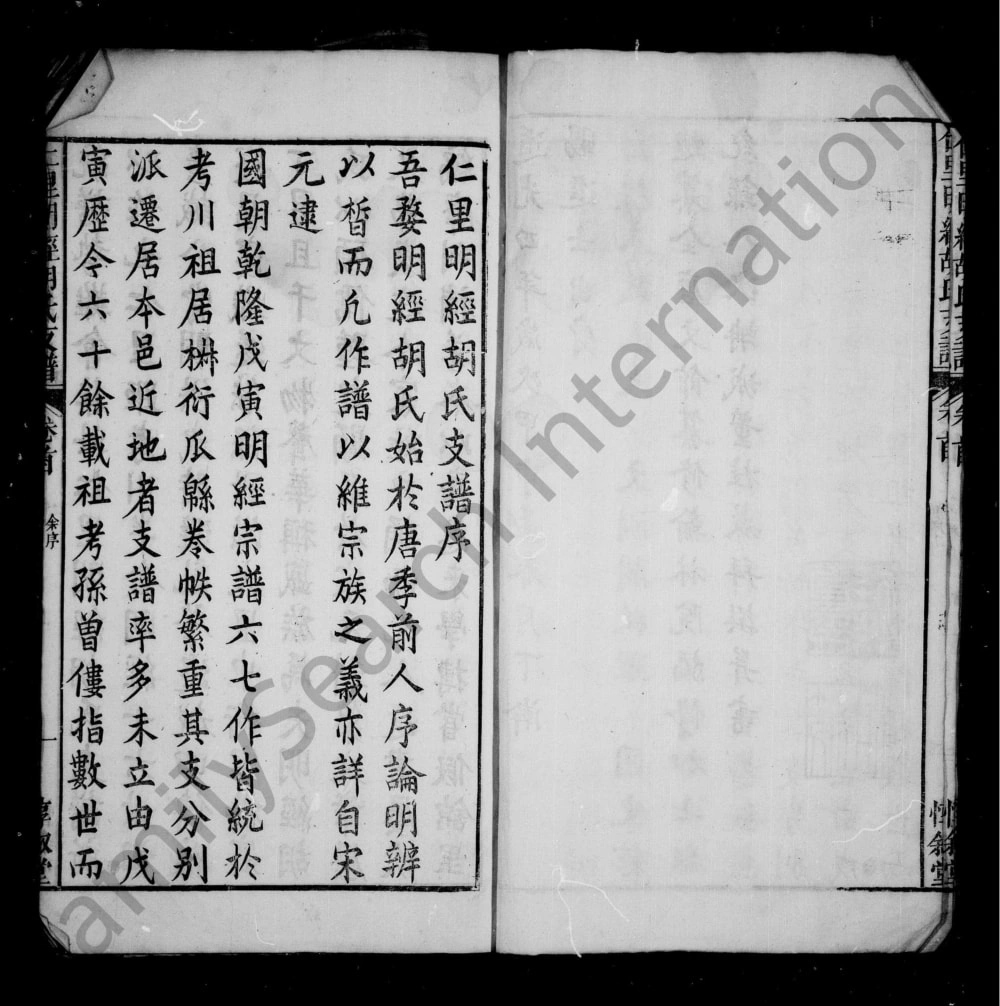 仁里明經胡氏支譜序
吾婺明經胡氏始於唐季前人序論明辨
以晳而凡作譜以維宗族之義亦詳自宋
元逮
國朝乾隆戊寅明經宗譜六七作皆統於
考川祖居椒衍瓜緜卷帙繁重其支分別
派遷居本邑近地者支譜率多未立由戊
寅歷今六十餘載祖考孫曾僂指數世而
仁里明經胡氏支譜
卷首
余序
一
惇敘堂
FamilySearch International